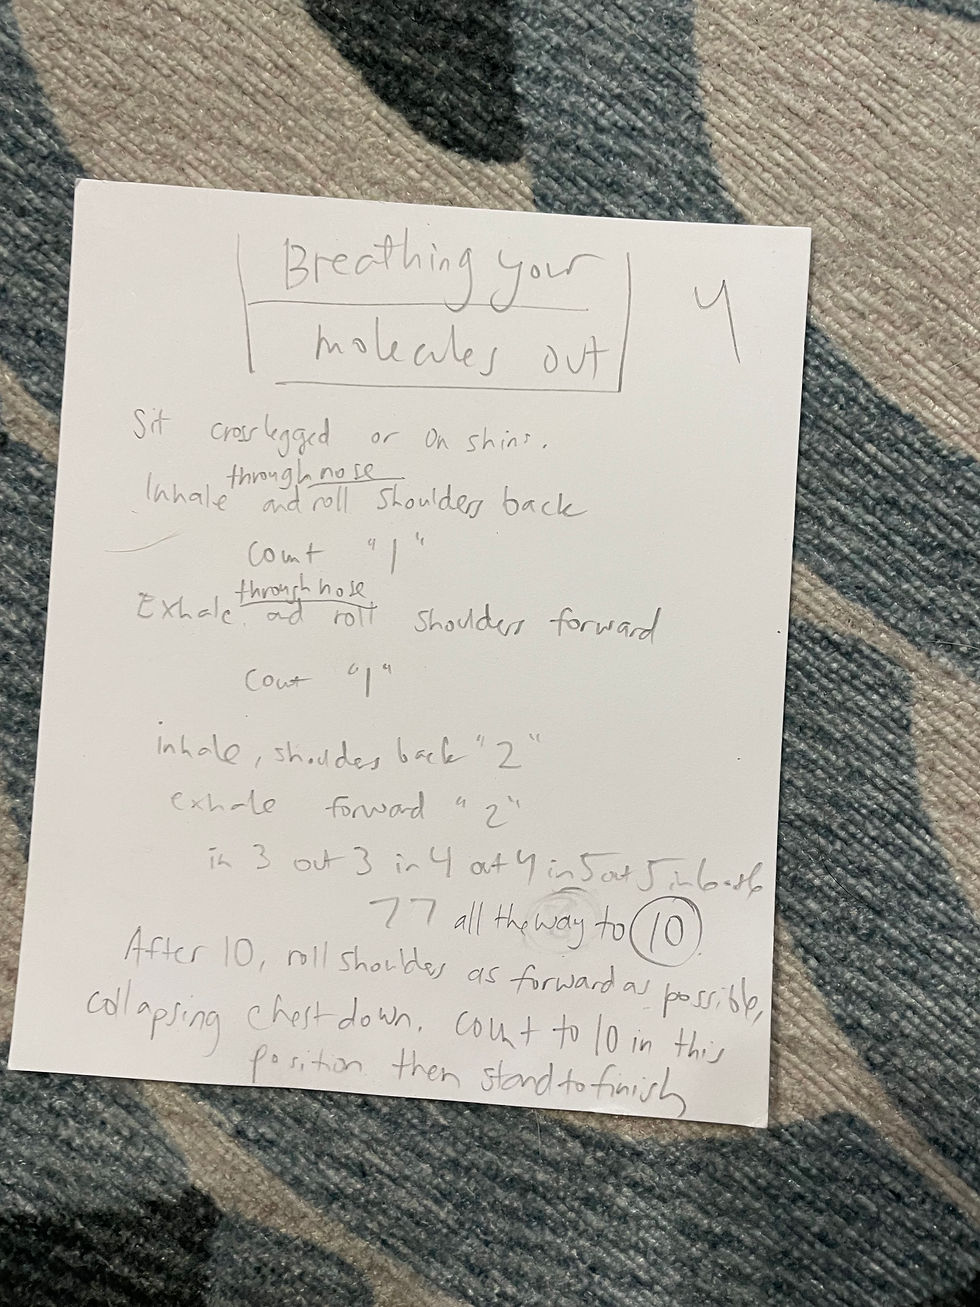 Breathing your
molecules out
4
Sit crosslegged or on shins.
through nose
Inhale and roll shoulders back
count "1"
through nose
Exhale and roll shoulders forward
Count "1"
inhale, shoulders back "2"
exhale forward "2"
in 3 out 3 in 4 out 4 in 5 out 5 in 6 out 6
7 7 all the way to 10
After 10, roll shoulders as forward as possible,
collapsing chest down. count to 10 in this
position then stand to finish